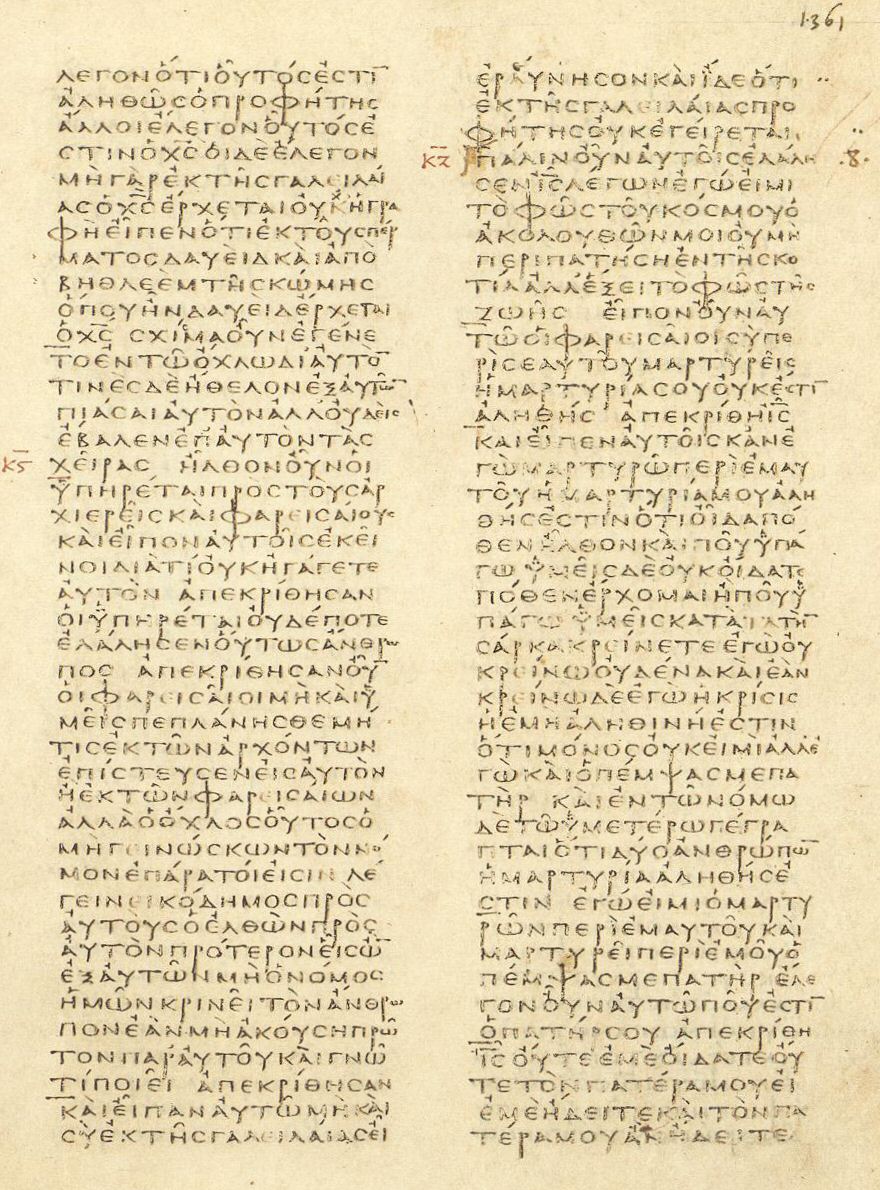 1361
ΛΕΓΟΝΟΤΙΟΥΤΟϹΕϹΤΙ̅
ΑΛΗΘΩϹΟΠΡΟΦΗΤΗϹ
ΑΛΛΟΙΕΛΕΓΟΝΟΥΤΟϹΕ
ϹΤΙΝΟΧ̅Ϲ̅ΟΙΔΕΕΛΕΓΟΝ
ΜΗΓΑΡΕΚΤΗϹΓΑΛΕΙΛΑΙ
ΑϹΟΧ̅Ϲ̅ΕΡΧΕΤΑΙΟΥΧΗΓΡΑ
ΦΗΕΙΠΕΝΟΤΙΕΚΤΟΥϹΠΕΡ
ΜΑΤΟϹΔΑΥΕΙΔΚΑΙΑΠΟ
ΒΗΘΛΕΕΜΤΗϹΚΩΜΗϹ
ΟΠΟΥΗΝΔΑΥΕΙΔΕΡΧΕΤΑΙ
ΟΧ̅Ϲ̅ ϹΧΙϹΜΑΟΥΝΕΓΕΝΕ
ΤΟΕΝΤΩΟΧΛΩΔΙΑΥΤΟ̅
ΤΙΝΕϹΔΕΗΘΕΛΟΝΕΞΑΥΤΩ̅
ΠΙΑϹΑΙΑΥΤΟΝΑΛΛΟΥΔΕΙϹ
ΕΒΑΛΕΝΕΠΑΥΤΟΝΤΑϹ
Κϛ̅ ΧΕΙΡΑϹ ΗΛΘΟΝΟΥΝΟΙ
ΥΠΗΡΕΤΑΙΠΡΟϹΤΟΥϹΑΡ
ΧΙΕΡΕΙϹΚΑΙΦΑΡΕΙϹΑΙΟΥϹ
ΚΑΙΕΙΠΟΝΑΥΤΟΙϹΕΚΕΙ
ΝΟΙΔΙΑΤΙΟΥΚΗΓΑΓΕΤΕ
ΑΥΤΟΝ ΑΠΕΚΡΙΘΗϹΑΝ
ΟΙΥΠΗΡΕΤΑΙΟΥΔΕΠΟΤΕ
ΕΛΑΛΗϹΕΝΟΥΤΩϹΑΝΘΡΩ
ΠΟϹ ΑΠΕΚΡΙΘΗϹΑΝΟΥ̅
ΟΙΦΑΡΕΙϹΑΙΟΙΜΗΚΑΙΥ
ΜΕΙϹΠΕΠΛΑΝΗϹΘΕΜΗ
ΤΙϹΕΚΤΩΝΑΡΧΟΝΤΩΝ
ΕΠΙϹΤΕΥϹΕΝΕΙϹΑΥΤΟΝ
ΗΕΚΤΩΝΦΑΡΕΙϹΑΙΩΝ
ΑΛΛΑΟΟΧΛΟϹΟΥΤΟϹΟ
ΜΗΓΕΙΝΩϹΚΩΝΤΟΝΝΟ
ΜΟΝΕΠΑΡΑΤΟΙΕΙϹΙΝ ΛΕ
ΓΕΙΝΕΙΚΟΔΗΜΟϹΠΡΟϹ
ΑΥΤΟΥϹΟΕΛΘΩΝΠΡΟϹ
ΑΥΤΟΝΠΡΟΤΕΡΟΝΕΙϹΩ̅
ΕΞΑΥΤΩΝΜΗΟΝΟΜΟϹ
ΗΜΩΝΚΡΙΝΕΙΤΟΝΑΝΘΡΩ
ΠΟΝΕΑΝΜΗΑΚΟΥϹΗΠΡΩ̅
ΤΟΝΠΑΡΑΥΤΟΥΚΑΙΓΝΩ
ΤΙΠΟΙΕΙ ΑΠΕΚΡΙΘΗϹΑΝ
ΚΑΙΕΙΠΑΝΑΥΤΩΜΗΚΑΙ
ϹΥΕΚΤΗϹΓΑΛΕΙΛΑΙΑϹΕΙ
ΕΡΑΥΝΗϹΟΝΚΑΙΙΔΕΟΤΙ
ΕΚΤΗϹΓΑΛΕΙΛΑΙΑϹΠΡΟ
ΦΗΤΗϹΟΥΚΕΓΕΙΡΕΤΑΙ
ΚΖ̅ ΠΑΛΙΝΟΥΝΑΥΤΟΙϹΕΛΑΛΗ ·8·
ϹΕΝΙ̅Ϲ̅ΛΕΓΩΝΕΓΩΕΙΜΙ
ΤΟΦΩϹΤΟΥΚΟϹΜΟΥΟ
ΑΚΟΛΟΥΘΩΝΜΟΙΟΥΜΗ
ΠΕΡΙΠΑΤΗϹΗΕΝΤΗϹΚΟ
ΤΙΑΑΛΛΕΞΕΙΤΟΦΩϹΤΗϹ
ΖΩΗϹ ΕΙΠΟΝΟΥΝΑΥ
ΤΩΟΙΦΑΡΕΙϹΑΙΟΙϹΥΠΕ
ΡΙϹΕΑΥΤΟΥΜΑΡΤΥΡΕΙϹ
ΗΜΑΡΤΥΡΙΑϹΟΥΟΥΚΕϹΤΙ̅
ΑΛΗΘΗϹ ΑΠΕΚΡΙΘΗΙ̅Ϲ̅
ΚΑΙΕΙΠΕΝΑΥΤΟΙϹΚΑΝΕ
ΓΩΜΑΡΤΥΡΩΠΕΡΙΕΜΑΥ
ΤΟΥΗΜΑΡΤΥΡΙΑΜΟΥΑΛΗ
ΘΗϹΕϹΤΙΝΟΤΙΟΙΔΑΠΟ
ΘΕΝΗΛΘΟΝΚΑΙΠΟΥΥΠΑ
ΓΩ ΥΜΕΙϹΔΕΟΥΚΟΙΔΑΤΕ
ΠΟΘΕΝΕΡΧΟΜΑΙΗΠΟΥΥ
ΠΑΓΩ ΥΜΕΙϹΚΑΤΑΤΗ̅
ϹΑΡΚΑΚΡΕΙΝΕΤΕΕΓΩΟΥ
ΚΡΕΙΝΩΟΥΔΕΝΑΚΑΙΕΑΝ
ΚΡΕΙΝΩΔΕΕΓΩΗΚΡΙϹΙϹ
ΗΕΜΗΑΛΗΘΙΝΗΕϹΤΙΝ
ΟΤΙΜΟΝΟϹΟΥΚΕΙΜΙΑΛΛΕ
ΓΩΚΑΙΟΠΕΜΨΑϹΜΕΠΑ
ΤΗΡ ΚΑΙΕΝΤΩΝΟΜΩ
ΔΕΤΩΥΜΕΤΕΡΩΓΕΓΡΑ
ΠΤΑΙΟΤΙΔΥΟΑΝΘΡΩΠΩ̅
ΗΜΑΡΤΥΡΙΑΑΛΗΘΗϹΕ
ϹΤΙΝ ΕΓΩΕΙΜΙΟΜΑΡΤΥ
ΡΩΝΠΕΡΙΕΜΑΥΤΟΥΚΑΙ
ΜΑΡΤΥΡΕΙΠΕΡΙΕΜΟΥΟ
ΠΕΜΨΑϹΜΕΠΑΤΗΡ ΕΛΕ
ΓΟΝΟΥΝΑΥΤΩΠΟΥΕϹΤΙ̅
ΟΠΑΤΗΡϹΟΥ ΑΠΕΚΡΙΘΗ
Ι̅Ϲ̅ΟΥΤΕΕΜΕΟΙΔΑΤΕΟΥ
ΤΕΤΟΝΠΑΤΕΡΑΜΟΥΕΙ
ΕΜΕΗΔΕΙΤΕΚΑΙΤΟΝΠΑ
ΤΕΡΑΜΟΥΑΝΗΔΕΙΤΕ